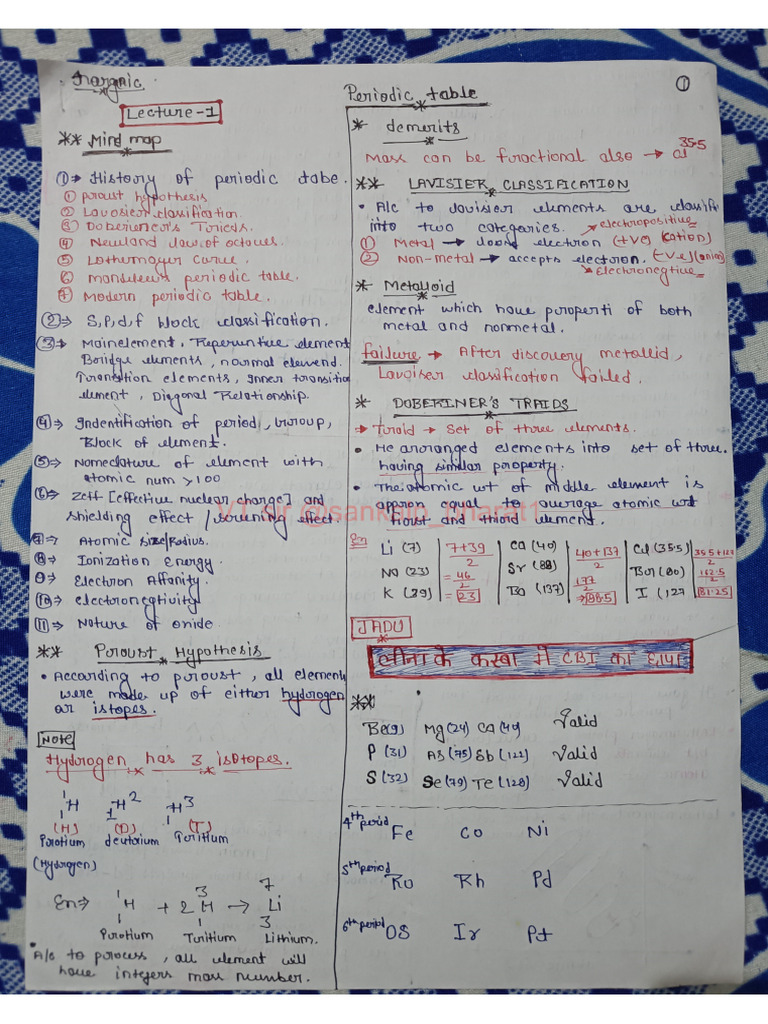 Inorganic
Periodic table
①
Lecture-1
** Mind map
①⇒ History of periodic tabe.
① proust hypothesis
② Lavosier classification.
③ Doberiener's Tirieds.
④ Newland law of octaves.
⑤ Lothermayer curve.
⑥ mandeleev periodic table.
⑦ Modern periodic table.
②⇒ S,P,d,f block classification.
③⇒ Mainelement, Reperesntive element
Boridge elements, normal elevend.
Transition elements, Inner transition
element, Diagonal Relationship.
④⇒ Indentification of period, Group,
Block of element.
⑤⇒ Nomeclature of element with
atomic num >100
⑥⇒ Zeff [effective nuclear charge] and
shielding effect / screening effect.
⑦⇒ Atomic size/Radius.
⑧⇒ Ionization Energy.
⑨⇒ Electron Affanity.
⑩⇒ electronegtivity
⑪⇒ Nature of oxide.
** Poroust Hypothesis
• According to poroust, all element
were made up of either hydrogen
or istopes.
NOTE
Hydrogen has 3 istopes.
1 H 1 1 H 2 1 H 3
(H) (D) (T)
Porotium deutorium Toritium
(Hydrogen)
En⇒ 1 H 1 + 2 3 H 1 → 7 Li 3
Porotium Turitium Lithium.
• A/c to porouss, all element will
have integers mass number.
* demerits
Mass can be furactional also → Cl 35.5
** LAVISIER CLASSIFICATION
• A/c to lavisier elements are classifi
into two categories.
→ electropositive
① Metal → loose electron (+ve) (cation)
② Non-metal → accepts electron. (-ve) (anion)
→ Electronegtive
* Metalloid
element which have poroperti of both
metal and nonmetal.
failure → After discovery metallid,
Lavoiser classification failed.
* DOBERINER'S TRAIDS
→ Tiraid → Set of three elements.
• He arranged elements into set of three
having similar property.
• The atomic wt of middle element is
approx equal to average atomic wt
first and third element.
V.J sir @sankalp_bharat1
En
Li (7) 7+39/2 Ca (40) 40+137/2 Cl (35.5) 35.5+127/2
Na (23) = 46/2 Sr (88) 177/2 Bor (80) 162.5/2
K (39) = 23 Ba (137) ⇒ 88.5 I (127 81.25
JADU
लीना के कस्बा में CBI का छापा
**
Be(9) Mg(24) Ca(40) Valid
P (31) As (75) Sb (122) Valid
S (32) Se (79) Te (128) Valid
4th period Fe Co Ni
5th period Ru Rh Pd
6th period OS Ir Pt